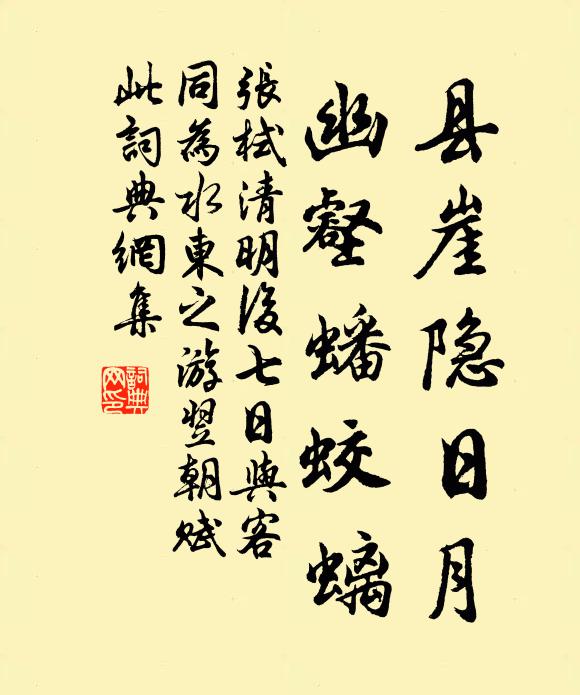 县崖隐日月
幽壑蟠蛟螭
張栻清明後七日與客
同為水東之游翌朝賦
此詞典網集
詞典
网印